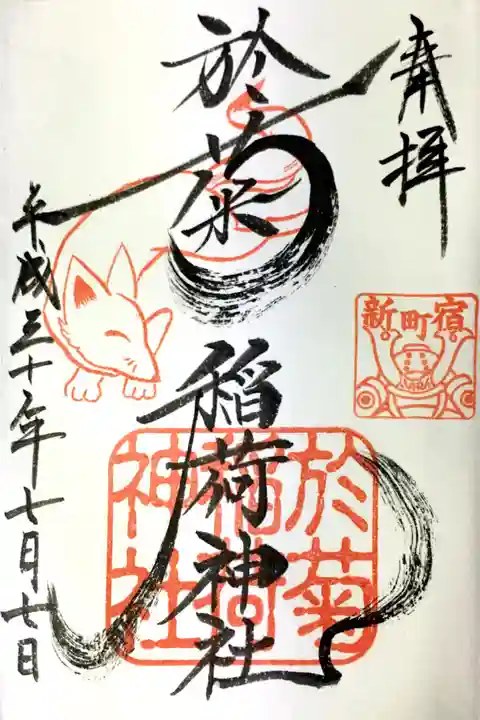 奉拝
新町宿
於菊稲荷神社
於菊
稲荷
神社
平成三十年七月七日